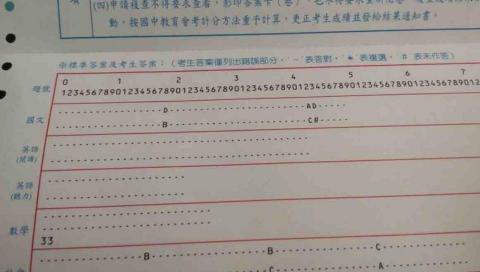 (四)申請複查不得要求重看、影印答案卡(卷),也不得要求
動,按國中教育會考計分方法重予計算,更正考生成績並發給結果通知書。
※標準答案及考生答案:(考生答案僅列出錯誤部分,‧表答對,* 表複選,# 表未作答)
0 1 2 3 4 5 6 7
題號 1234567890123456789012345678901234567890123456789012345678901234567890123
國文 ------------------D------------------------AD-----
------------------B------------------------C#--
英語
(閱讀)
英語
(聽力)
數學
33
B B C
C A
社會